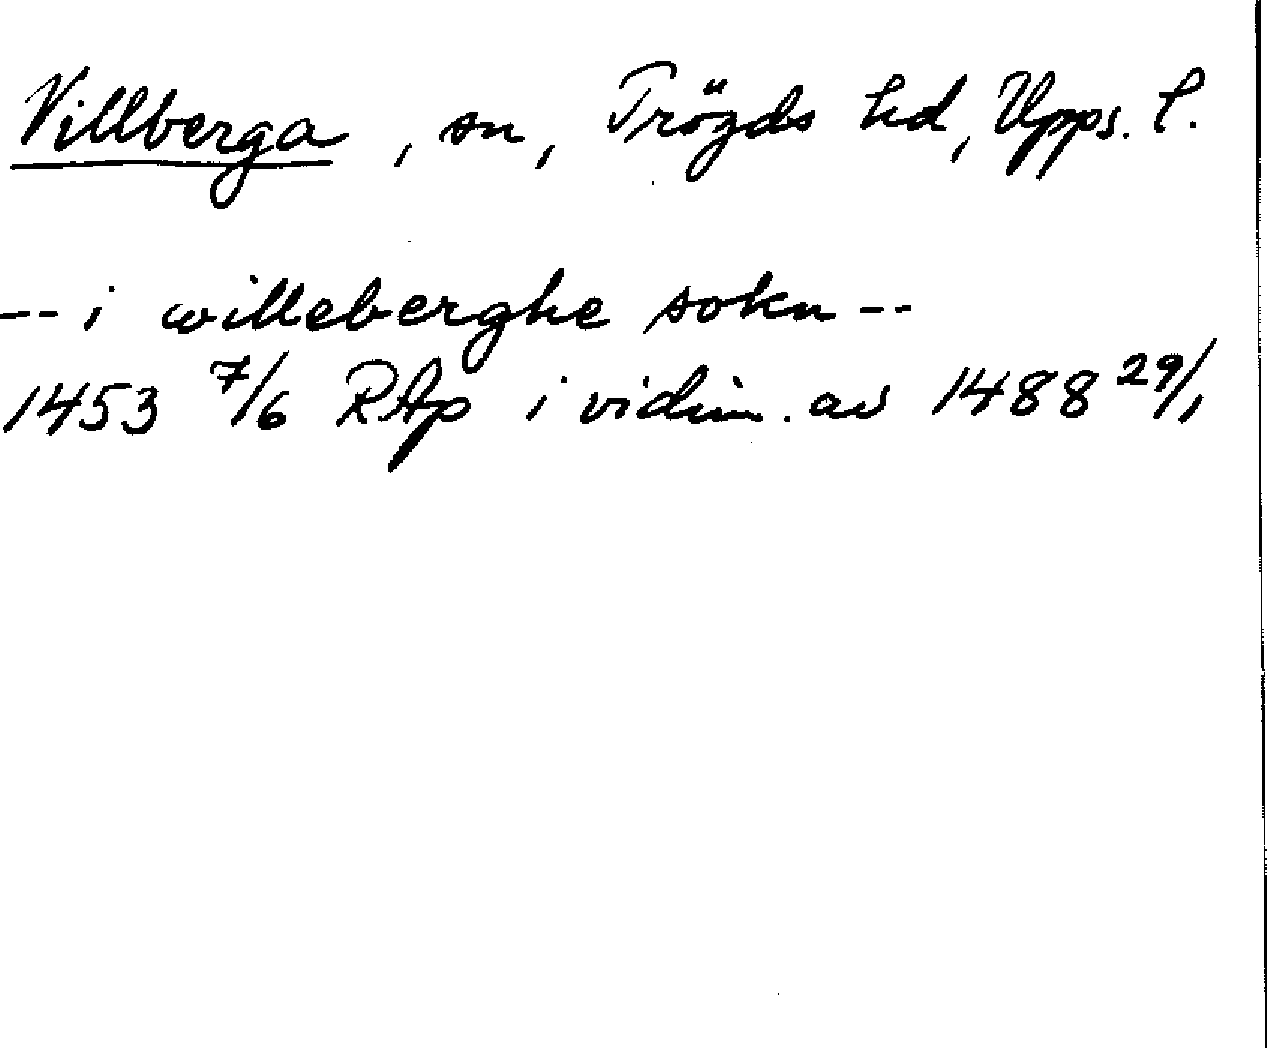 Villberga, sn, Trögds hd, Upps. l.
-- i willeberghe sokn --
1453 7/6 RAp i vidim. av 1488 29/1